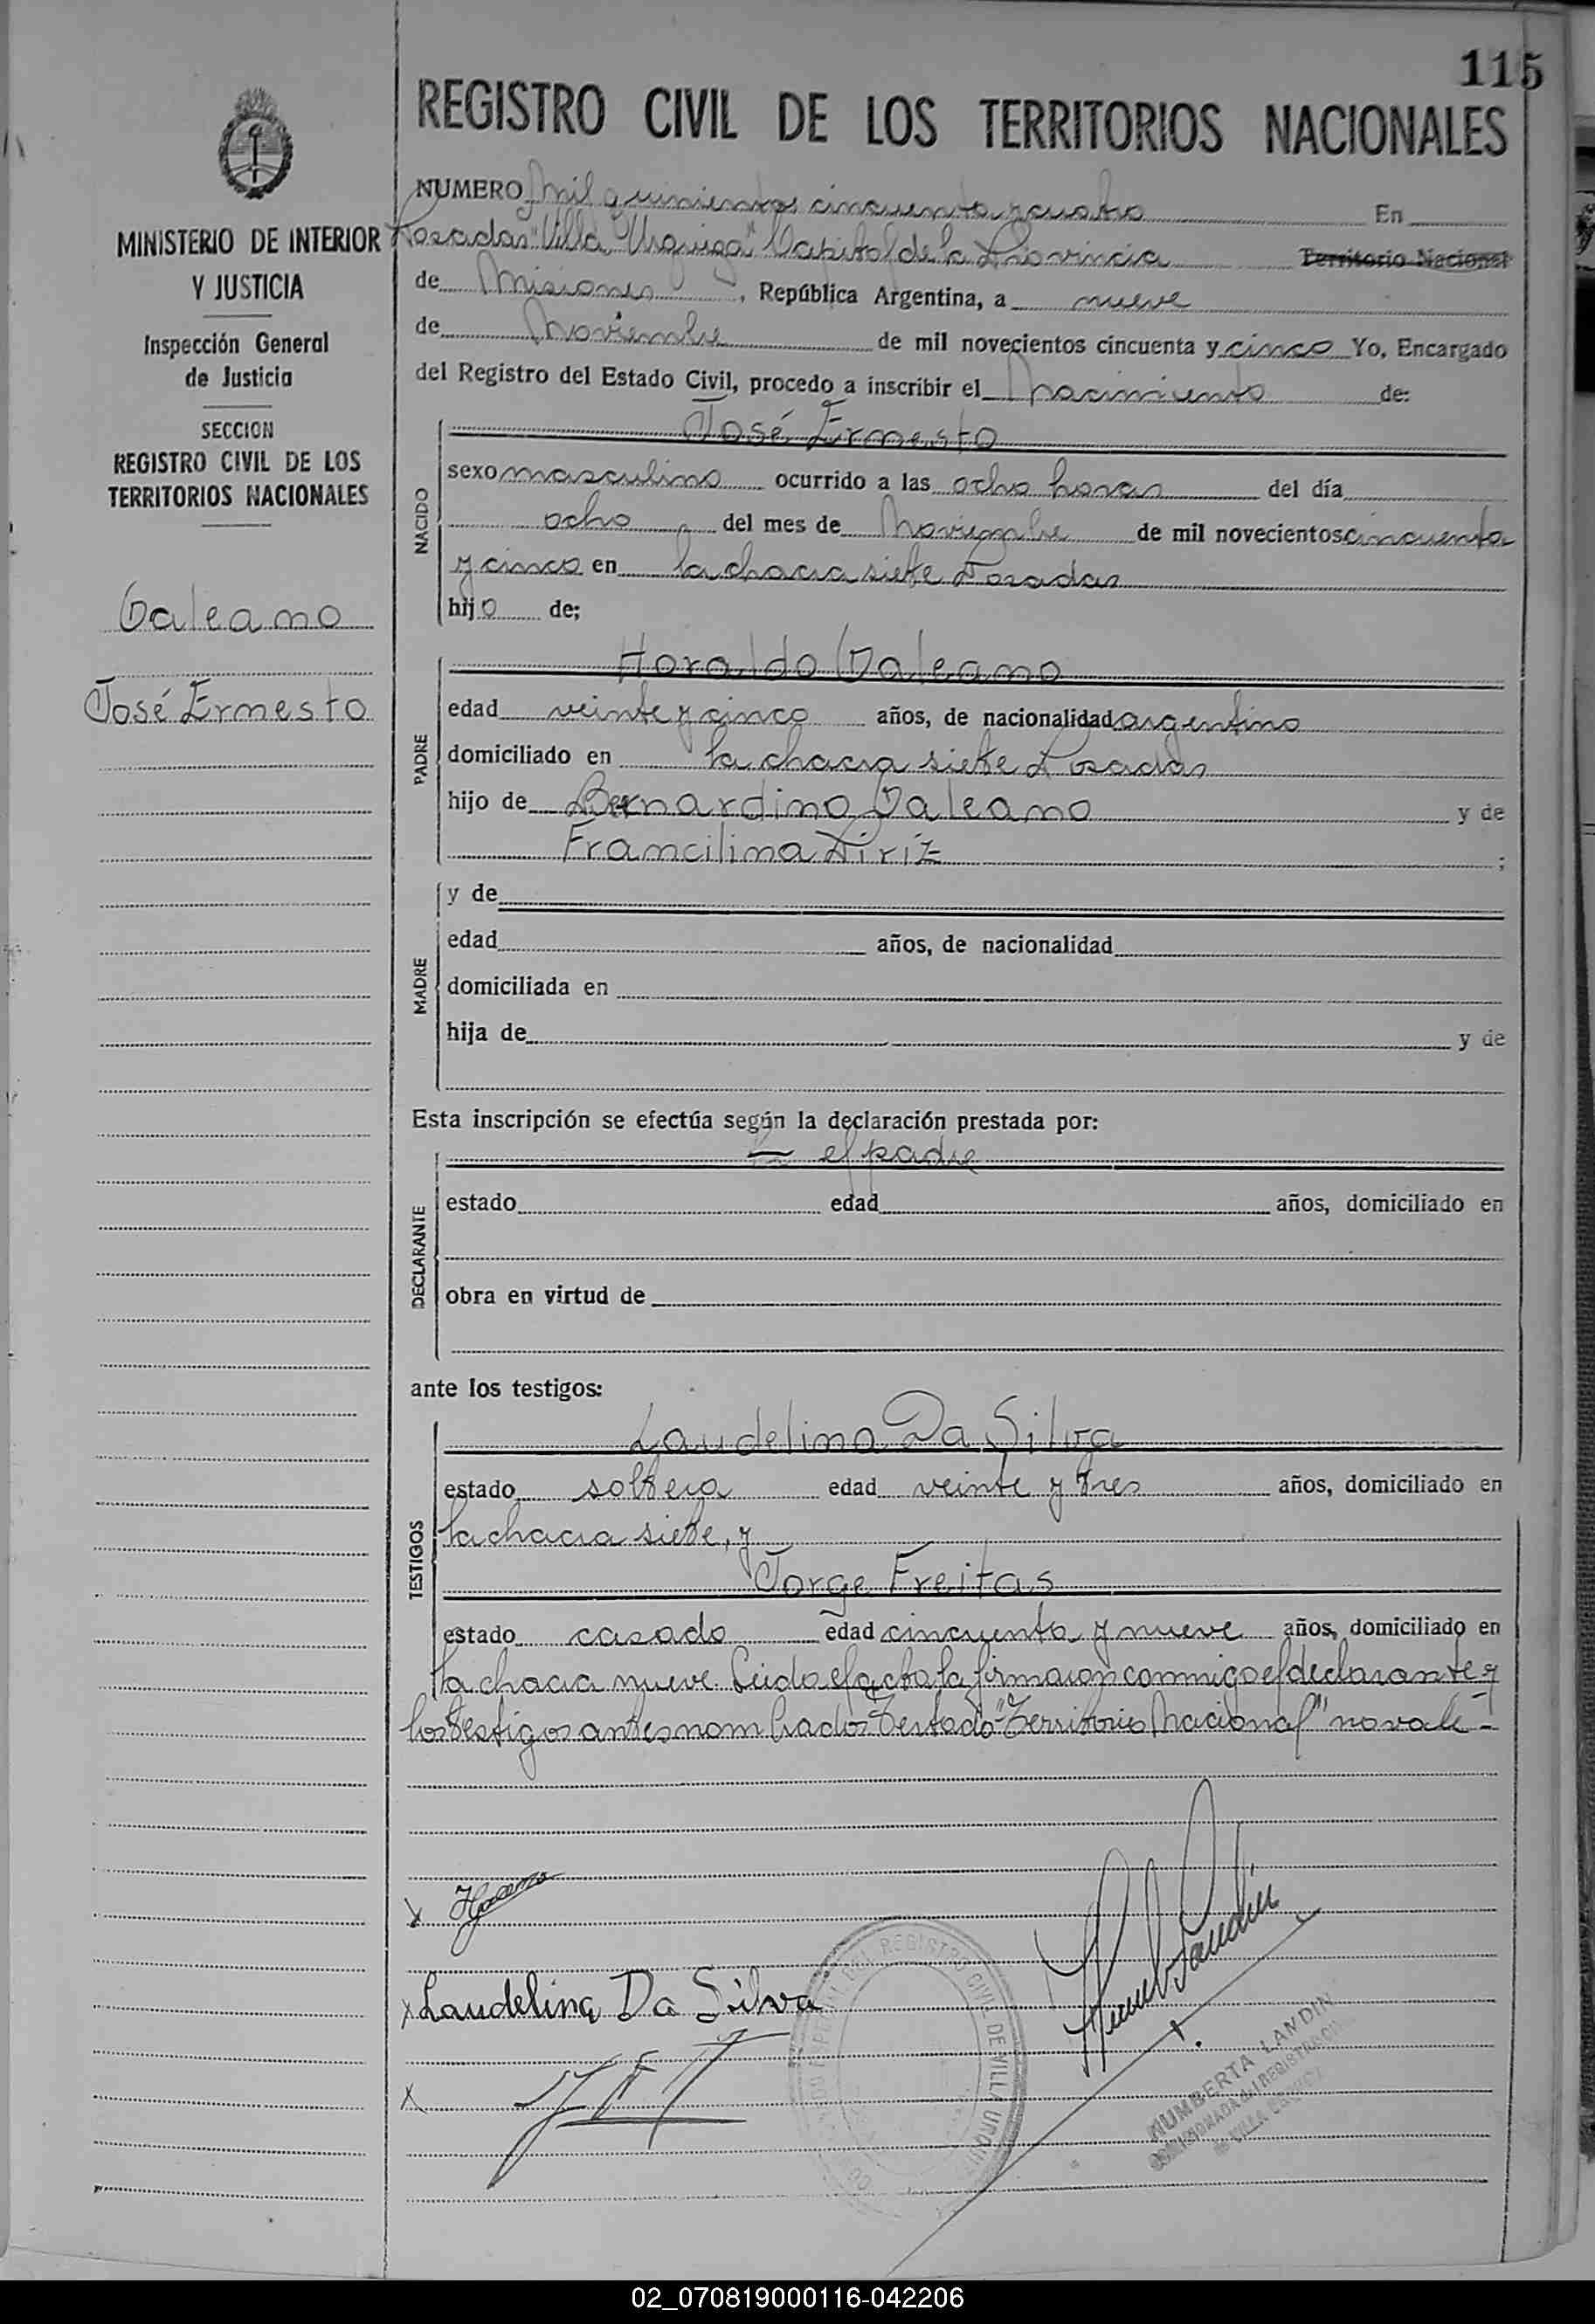 115
REGISTRO CIVIL DE LOS TERRITORIOS NACIONALES
MINISTERIO DE INTERIOR
Y JUSTICIA
Inspección General
de Justicia
SECCION
REGISTRO CIVIL DE LOS
TERRITORIOS NACIONALES
Galeano
José Ernesto
NUMERO mil quinientos cincuenta y cuatro En
Posadas "Villa Urquiza" Capital de la Provincia Territorio Nacional
de Misiones, República Argentina, a nueve
de Noviembre de mil novecientos cincuenta y cinco Yo, Encargado
del Registro del Estado Civil, procedo a inscribir el Nacimiento de:
NACIDO
José Ernesto
sexo masculino ocurrido a las ocho horas del día
ocho del mes de Noviembre de mil novecientos cincuenta
y cinco en la chacra siete Posadas
hijo de;
PADRE
Horaldo Galeano
edad veinte y cinco años, de nacionalidad argentino
domiciliado en la chacra siete Posadas
hijo de Bernardino Galeano y de
Francilina ;
MADRE
y de
edad años, de nacionalidad
domiciliada en
hija de y de
Esta inscripción se efectúa según la declaración prestada por:
DECLARANTE
el padre
estado edad años, domiciliado en
obra en virtud de
ante los testigos:
TESTIGOS
Laudelina Da Silva
estado soltera edad veinte y tres años, domiciliado en
la chacra siete, y
Jorge Freitas
estado casado edad cincuenta y nueve años, domiciliado en
la chacra nueve. Leida el acta la firmaron conmigo el declarante y
los testigos antes nombrados Testado "Territorio Nacional" no vale -
Laudelina Da Silva
DEL REGISTRO CIVIL DE VILLA URQUIZA
HUMBERTA LANDIN
02_070819000116-042206